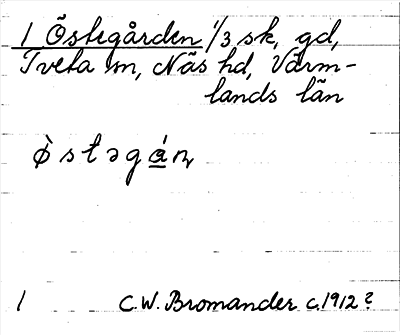 1 Östegården 1/3 sk, gd,
Tveta sn, Näs hd, Värm-
lands län
ø̀stəgá̲n,
1 C.W. Bromander c. 1912?